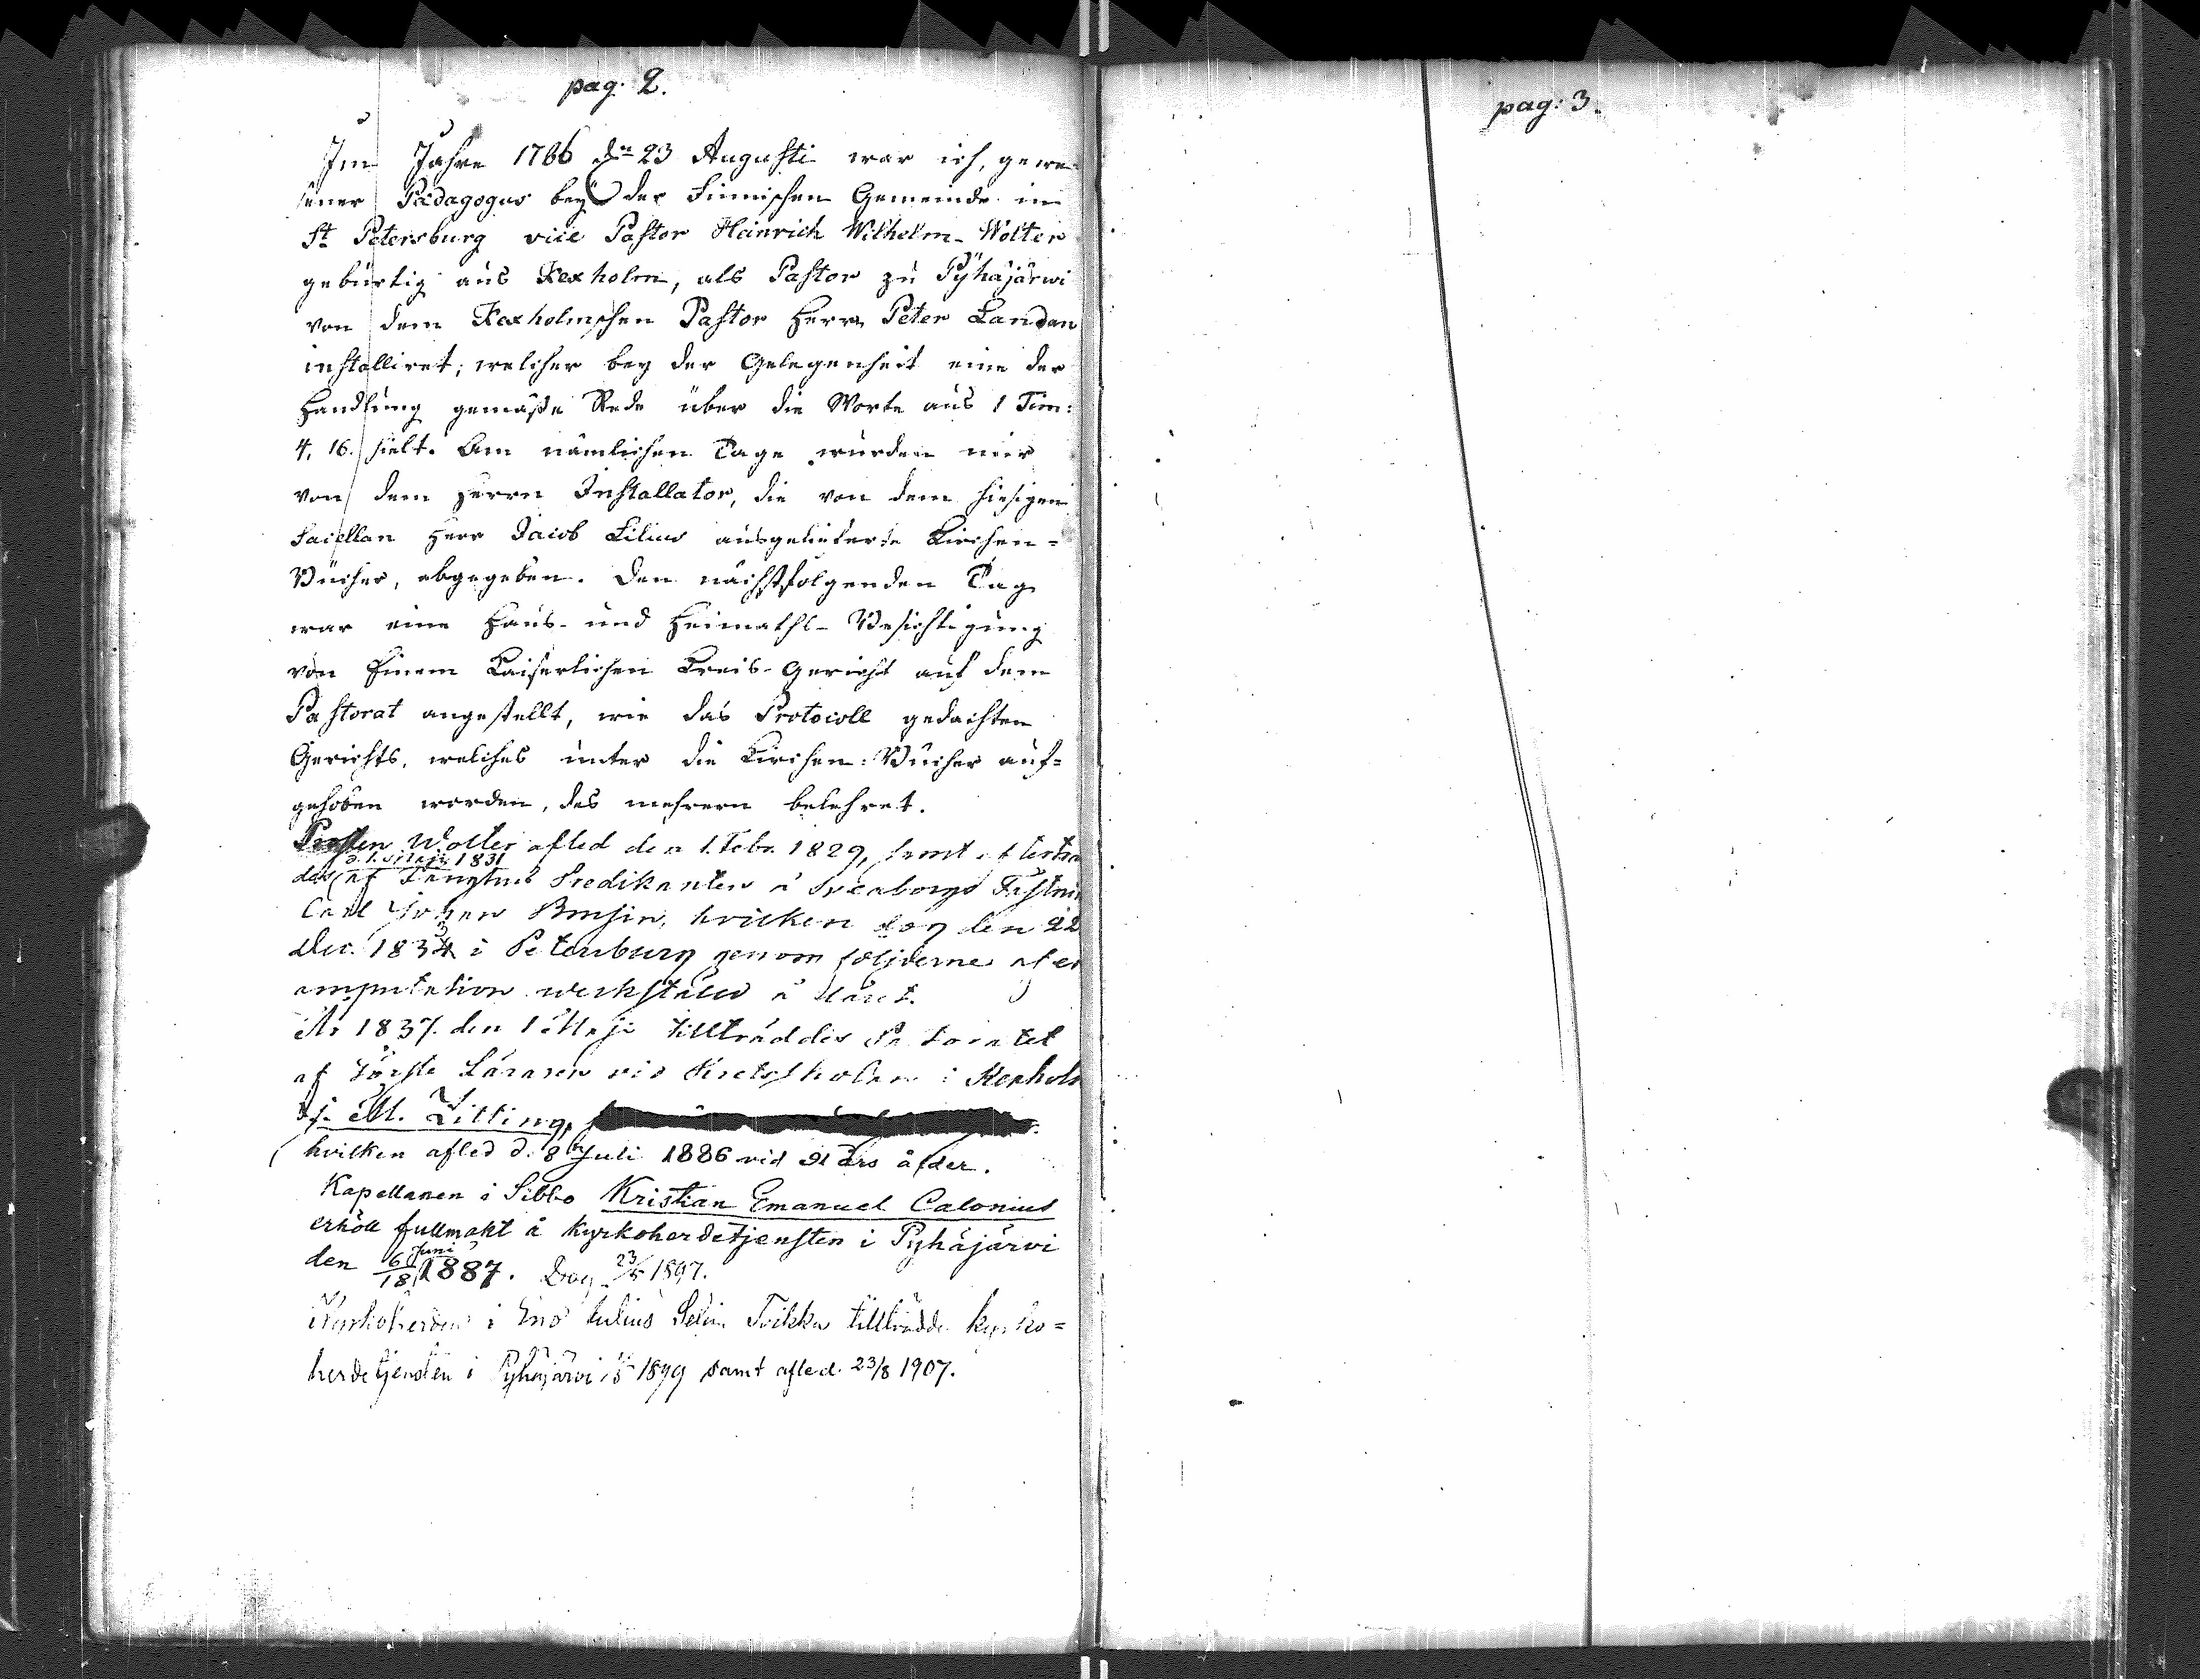 pag. 2.
Im Jahre 1786 den 23 Augusti war ich, gewe-
sener Pædagogus bey der Finnischen Gemeinde in
St Petersburg vice Pastor Heinrich Wilhelm Wolter
gebürtig aus Kexholm, als Pastor zu Pyhäjärwi
von dem Kexholmschen Pastor Herrn Peter Landan
installiret; welcher bey der Gelegenheit eine der
Handlung gemäße Rede über die Worte aus 1 Tim:
4, 16. hielt. Am nämlichen Tage wurden mir
von dem Herrn Installator, die von dem hiesigen
Sacellan Herr Jacob Lilius ausgelieferte Kirchen-
Bücher, abgegeben. Den nächstfolgenden Tag
war eine Haus- und Heimaths-Besichtigung
von Einem Kaiserlichen Kreis-Gericht auf dem
Pastorat angestellt, wie das Protocoll gedachten
Gerichts, welches unter die Kirchen-Bücher auf-
gehoben worden, des mehrern belehret.
Prosten Wolter afled den 1. Febr. 1829, samt efterträd
d. 1. Maji 1831
des af Fängelse Predikanten å Sveaborgs Fästni
Carl Johan Brusin, hvilken dog den 22
Dec. 1834 i Petersburg genom följderne af en
amputation werkställd å låret.
År 1837. den 1 Maji tillträddes Pastoratet
af Förste Läraren vid Kretsskolan i Kexholm
M. Zitting,
hvilken afled d. 8 Juli 1886 vid 91 års ålder.
Kapellanen i Sibbo Kristian Emanuel Calonius
erhöll fullmakt å kyrkoherdetjensten i Pyhäjärvi
den 6/18 Juni 1887. Dog 23/5 1897.
Kyrkoherden i Eno Julius Selim Toikka tillträdde kyrko=
herdetjensten i Pyhäjärvi 1/5 1899 samt afled 23/8 1907.
pag: 3.